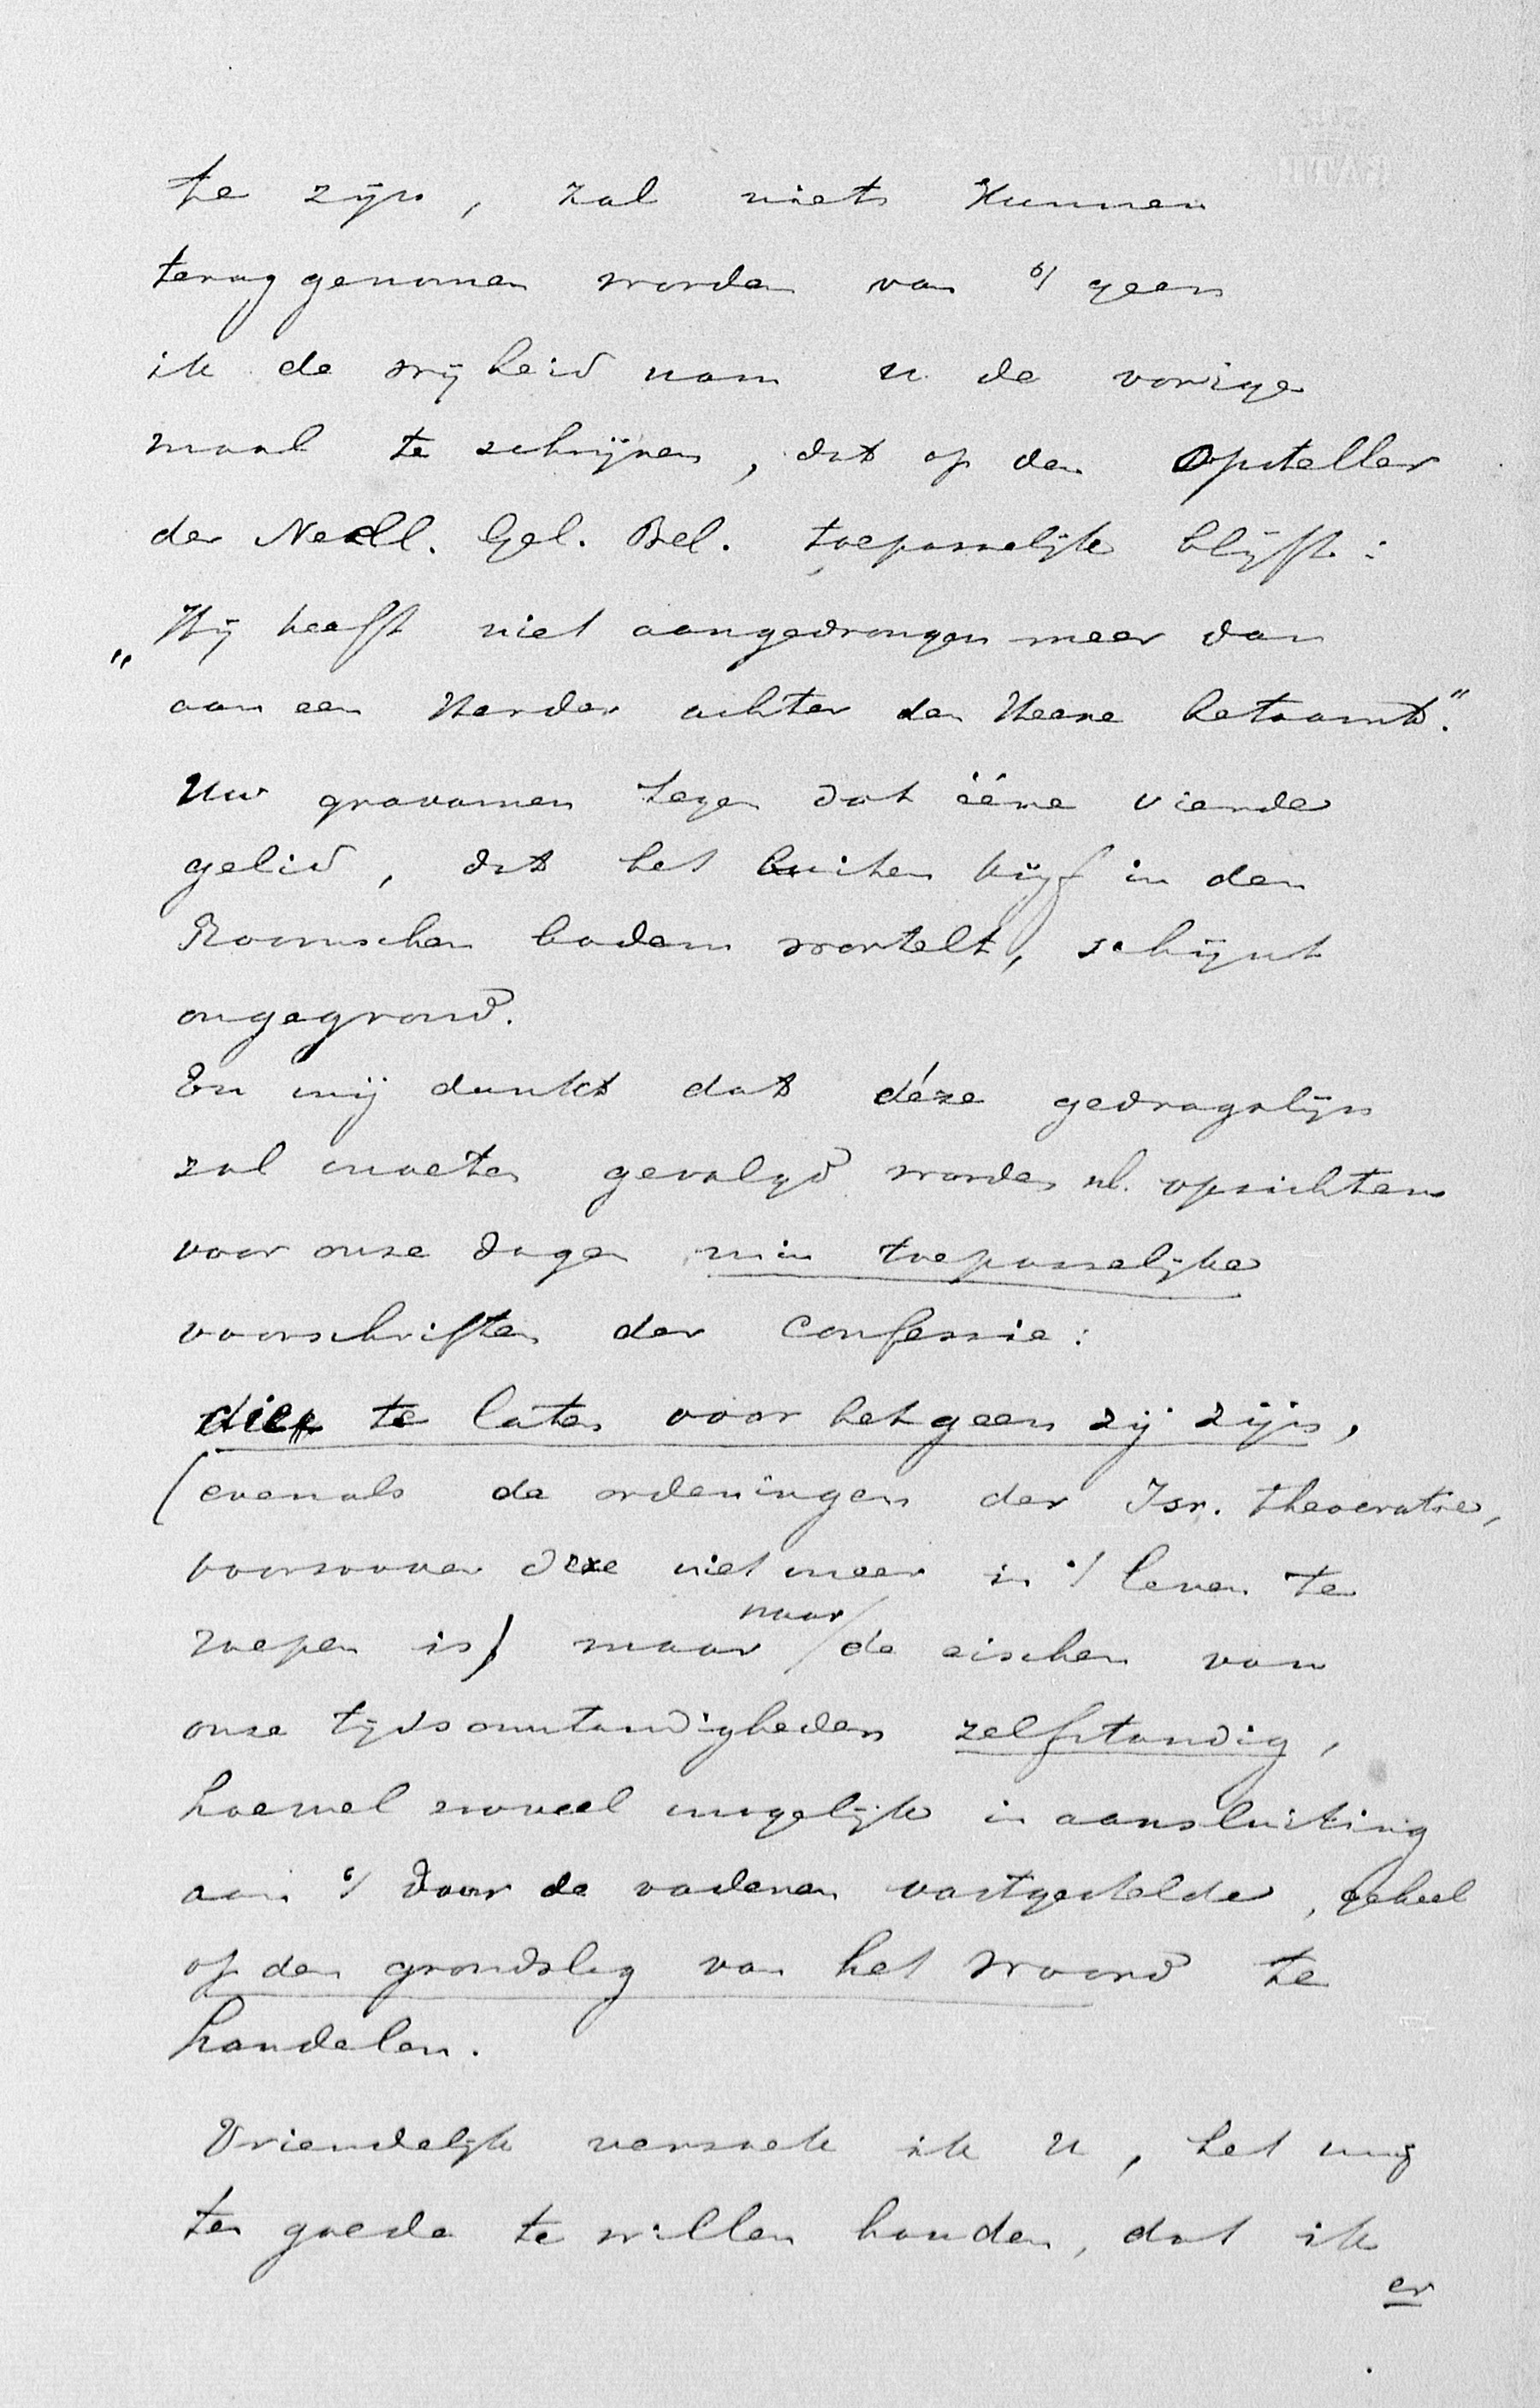 te zijn, zal niets kunnen
teruggenomen worden van 't geen
ik de vrijheid nam u de vorige
maal te schrijven, dat op den opsteller
der Nedl. Gel. Bel. toepasselijk blijft:
„Hij heeft niet aangedrongen meer dan
aan een Herder achter den Heere betaamt."
Uw gravamen tegen dat ééne vierde
gelid, dat het buiten kijf in den
Roomschen bodem wortelt, schijnt
ongegrond.
En mij dunkt dat déze gedragslijn
zal moeten gevolgd worden nl. opzichtens
voor onze dagen min toepasselijke
voorschriften der Confessie:
die te laten voor hetgeen zij zijn,
(evenals de ordeningen der Isr. theocratie,
voorzoover deze niet meer in 't leven te
roepen is) maar naar de eischen van
onze tijdsomstandigheden zelfstandig,
hoewel zooveel mogelijk in aansluiting
aan 't door de vaderen vastgestelde, geheel
op den grondslag van het Woord te
handelen.
Vriendelijk verzoek ik U, het mij
ten goede te willen houden, dat ik
er